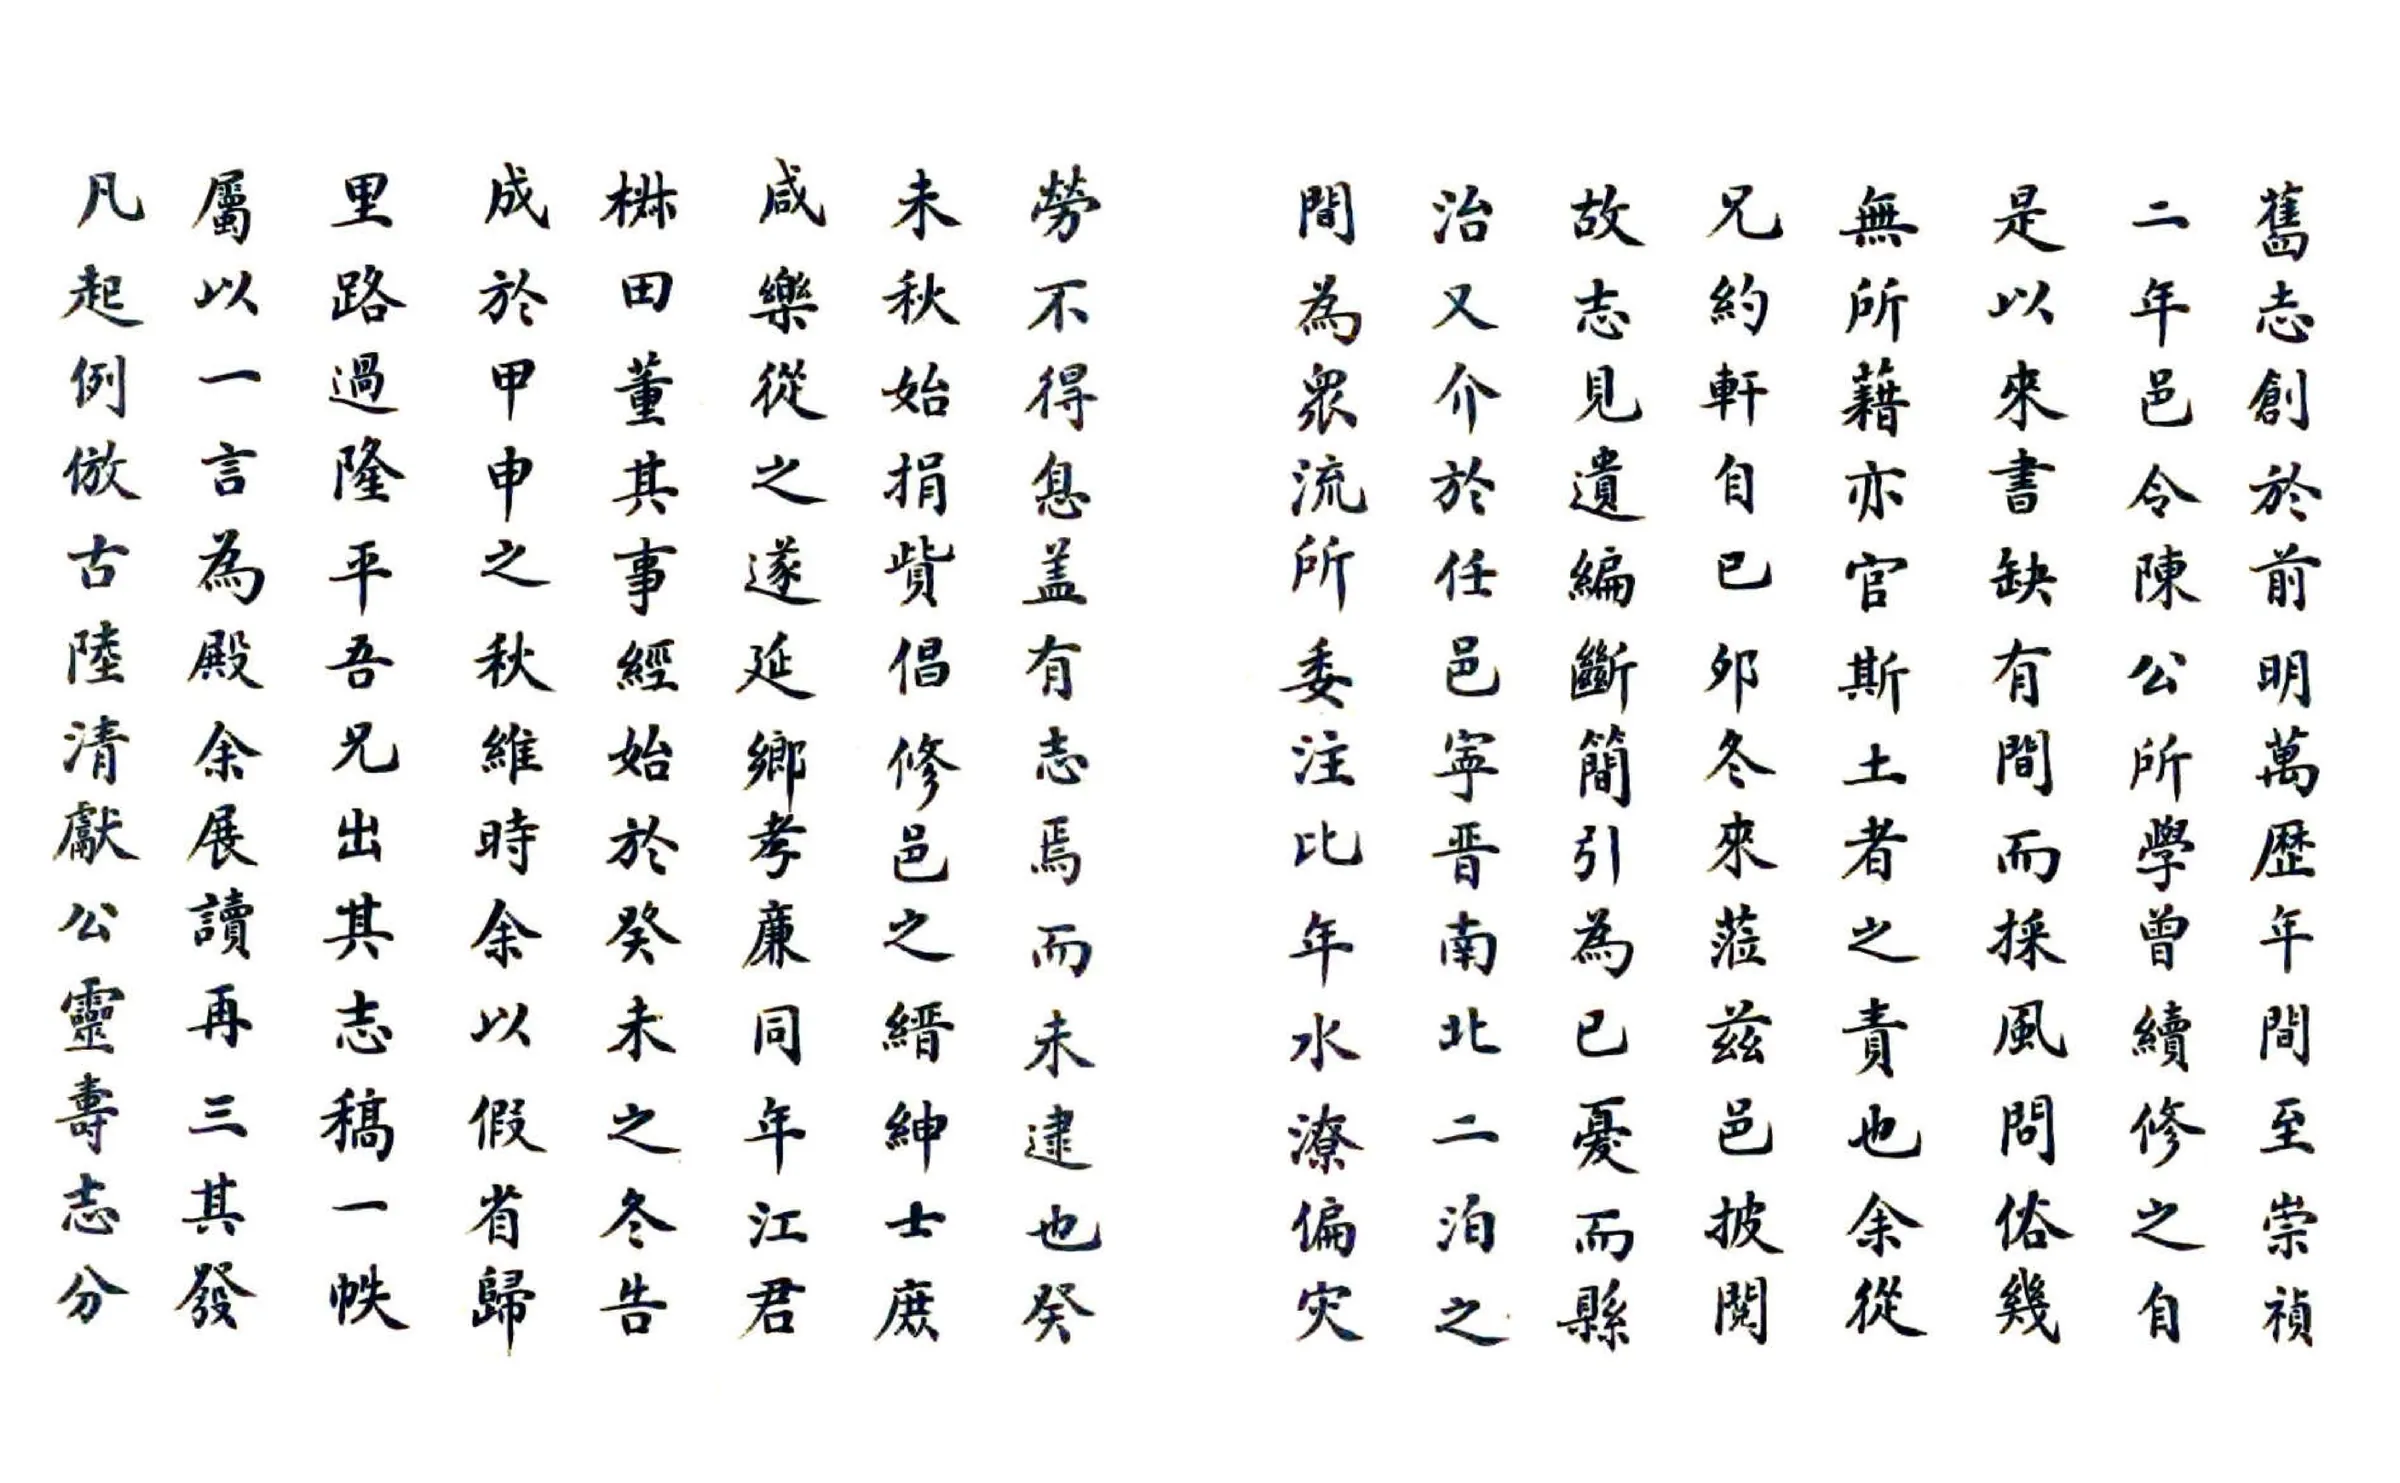 舊志創於前明萬歷年間至崇禎
二年邑令陳公所學曾續修之自
是以來書缺有間而採風問俗幾
無所藉亦官斯土者之責也余從
兄約軒自已夘冬來蒞茲邑披閱
故志見遺編斷簡引為已憂而縣
治又介於任邑寜晋南北二泊之
間為眾流所委注比年水潦偏灾
勞不得息盖有志焉而未逮也癸
未秋始捐貲倡修邑之縉紳士庶
咸樂從之遂延鄉孝廉同年江君
楙田董其事經始於癸未之冬告
成於甲申之秋維時余以假省歸
里路過隆平吾兄出其志稿一帙
屬以一言為殿余展讀再三其發
凡起例倣古陸清獻公靈壽志分